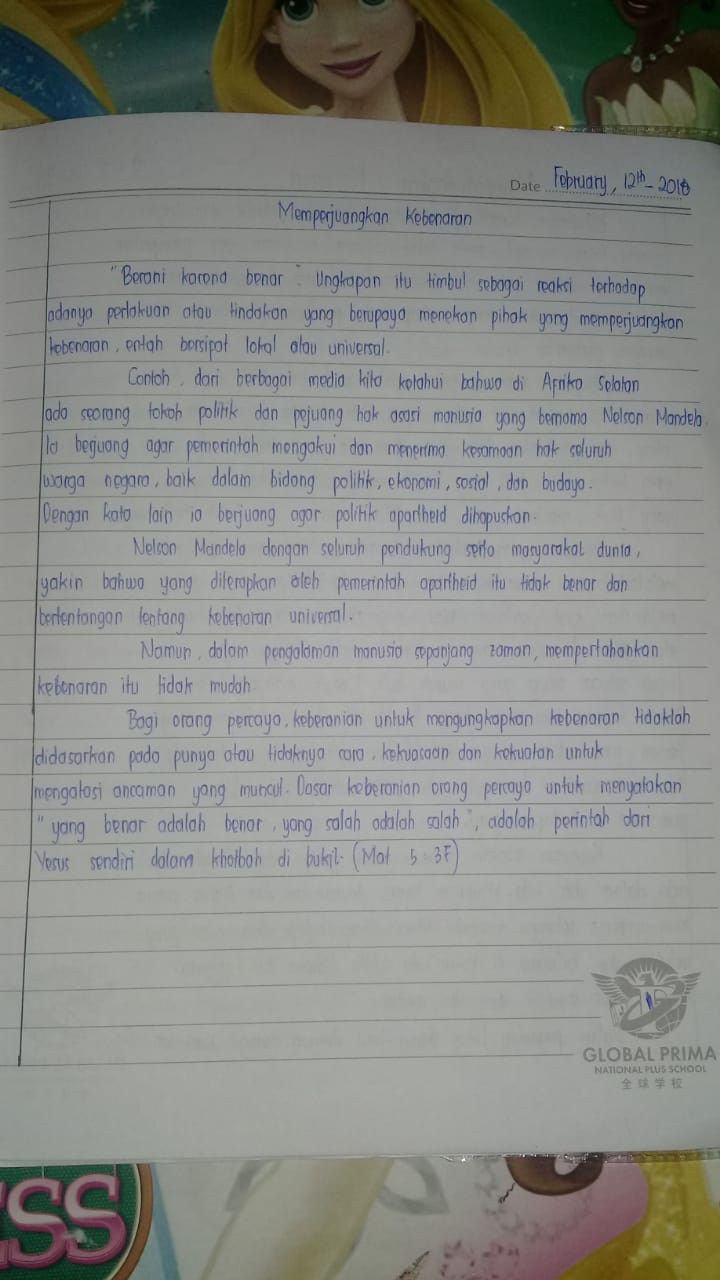 Date February, 12th - 2018
Memperjuangkan Kebenaran
"Berani karena benar". Ungkapan itu timbul sebagai reaksi terhadap
adanya perlakuan atau tindakan yang berupaya menekan pihak yang memperjuangkan
kebenaran, entah bersipat lokal atau universal.
Contoh, dari berbagai media kita ketahui bahwa di Afrika Selatan
ada seorang tokoh politik dan pejuang hak asasi manusia yang bernama Nelson Mandela.
Ia beguang agar pemerintah mengakui dan menerima kesamaan hak seluruh
warga negara, baik dalam bidang politik, ekonomi, sosial, dan budaya.
Dengan kata lain ia berjuang agar politik apartheid dihapuskan.
Nelson Mandela dengan seluruh pendukung serta masyarakat dunia,
yakin bahwa yang diterapkan oleh pemerintah apartheid itu tidak benar dan
bertentangan tentang kebenaran universal.
Namun, dalam pengalaman manusia sepanjang zaman, mempertahankan
kebenaran itu tidak mudah
Bagi orang percaya, keberanian untuk mengungkapkan kebenaran tidaklah
didasarkan pada punya atau tidaknya cara, kekuasaan dan kekuatan untuk
mengatasi ancaman yang muncul. Dasar keberanian orang percaya untuk menyatakan
"yang benar adalah benar, yang salah adalah salah", adalah perintah dari
Yesus sendiri dalam khotbah di bukit. (Mat 5:37)
GLOBAL PRIMA
NATIONAL PLUS SCHOOL
全球学校
ESS